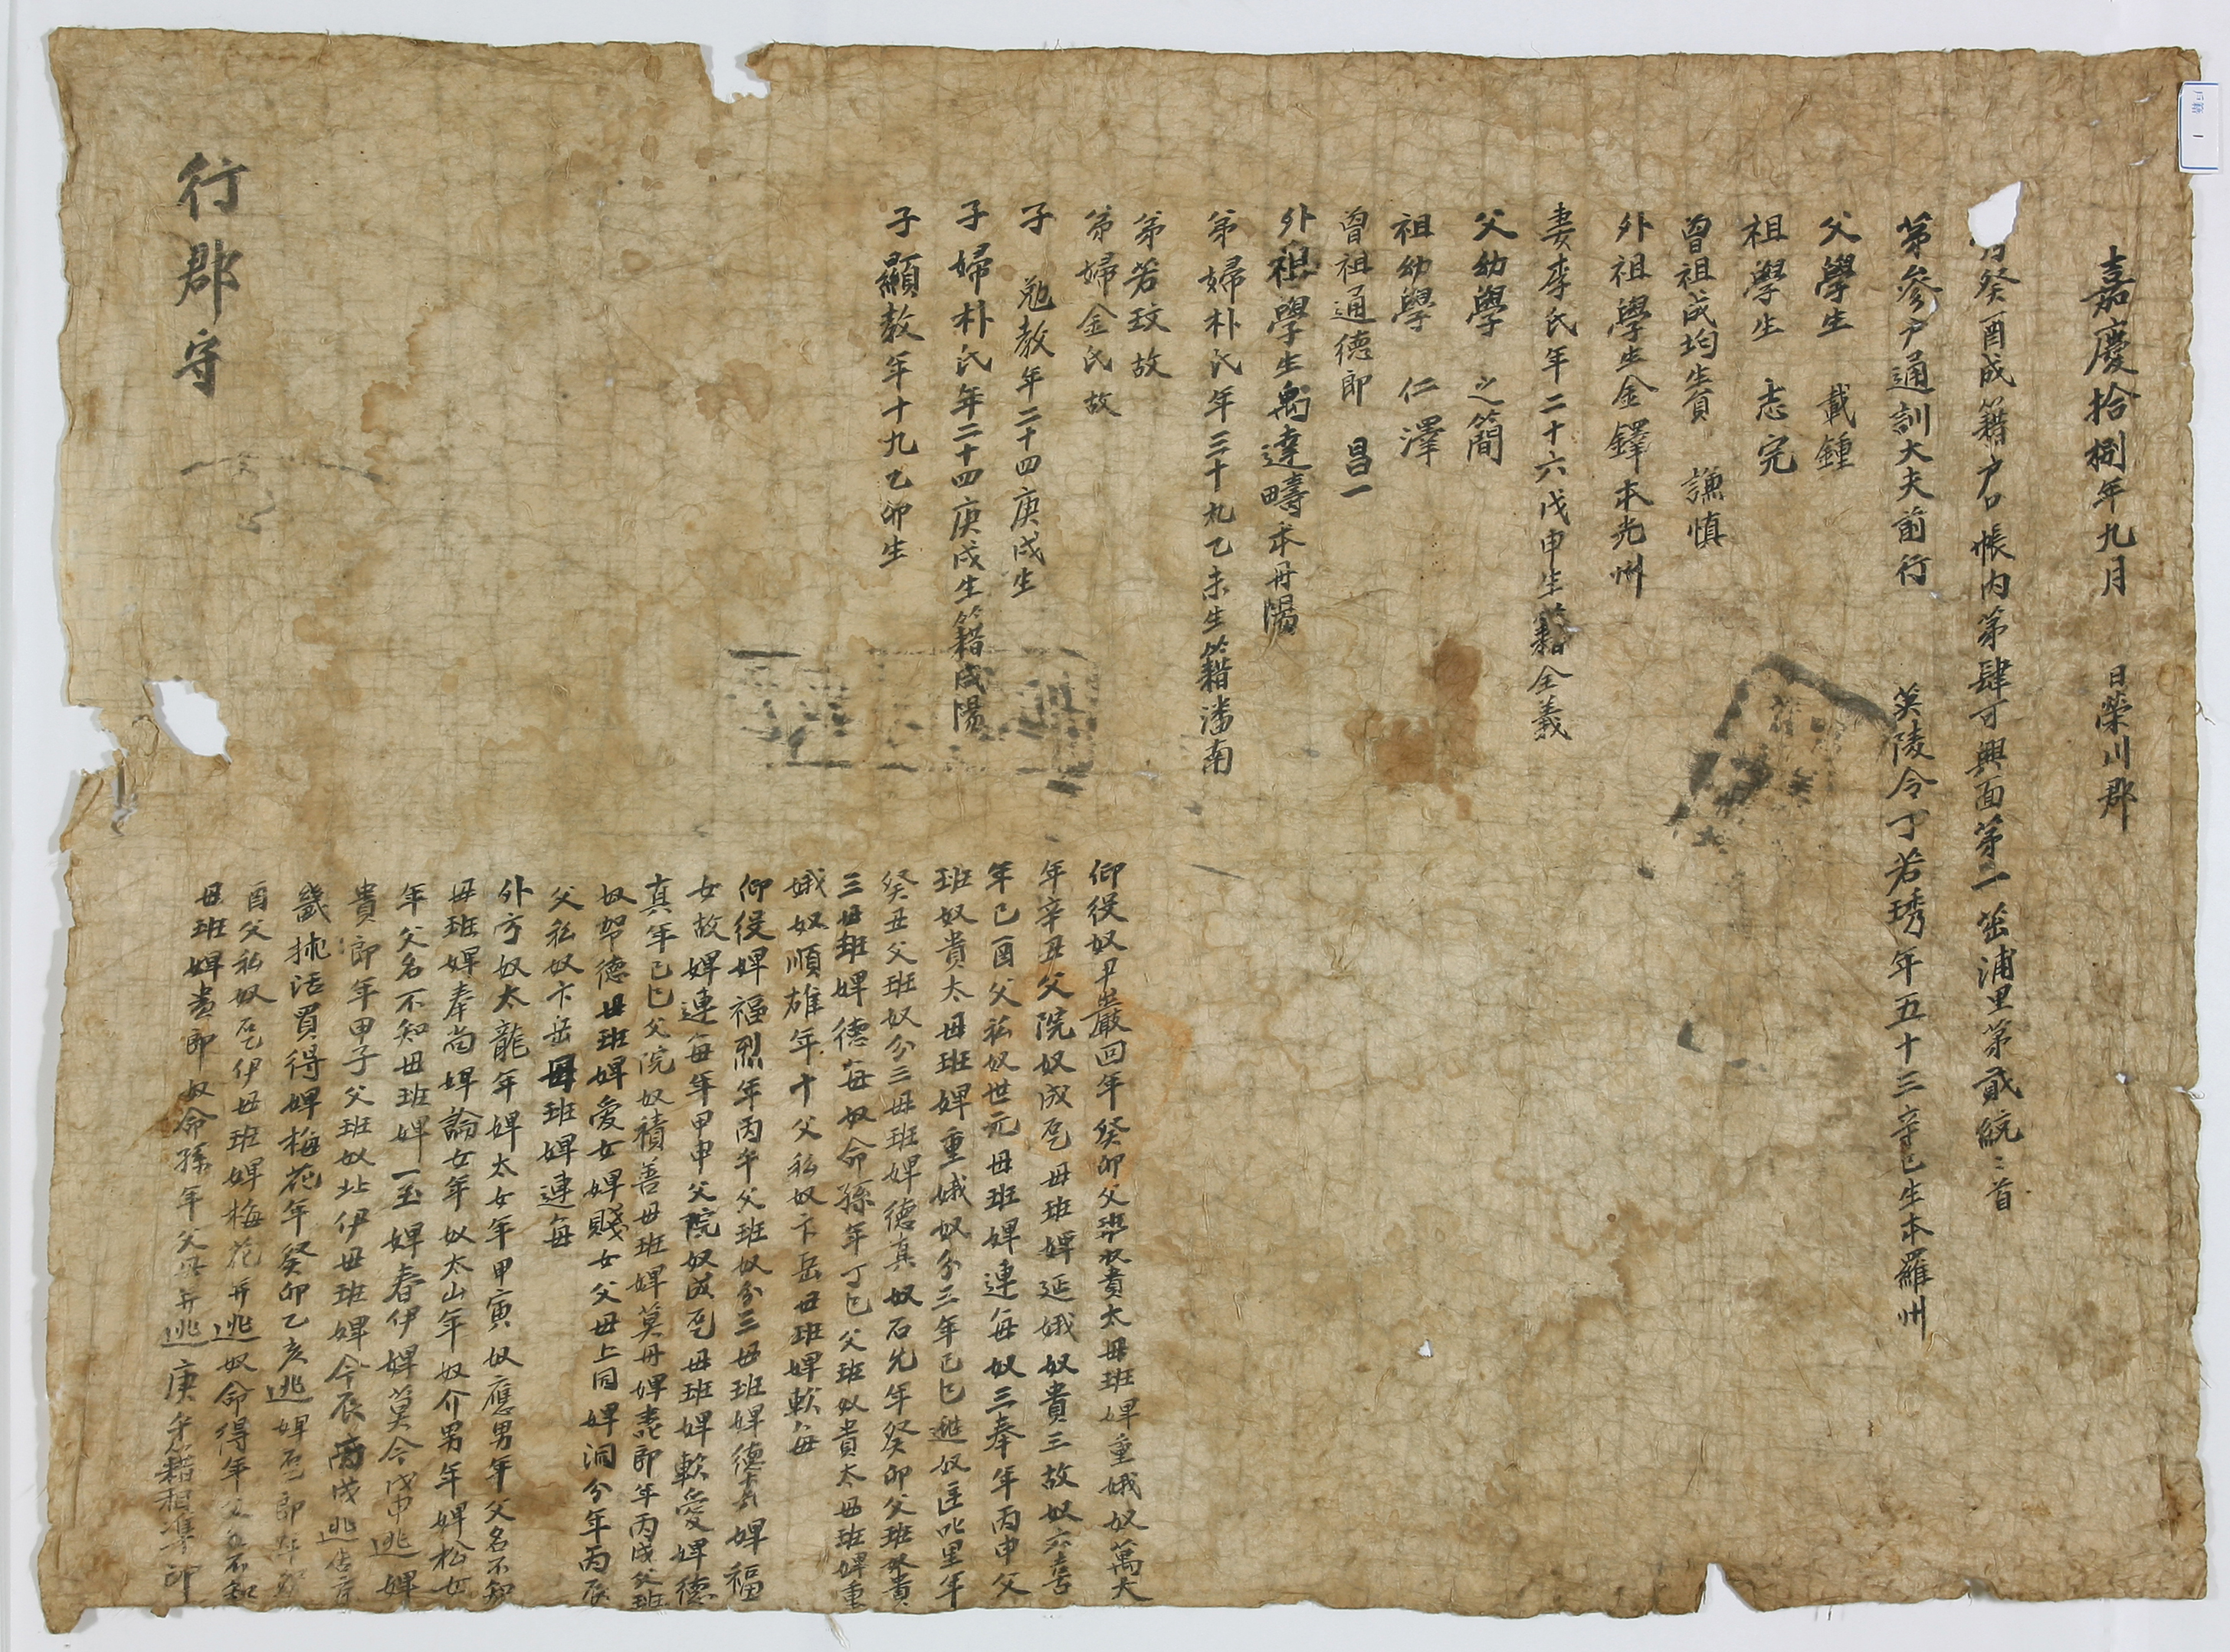 嘉慶拾捌年九月 日榮川郡
癸酉成籍户口帳内第肆可興面第一茁浦里第貳統二首
第參户通訓大夫前行 英陵令丁若琇年五十三辛巳生本羅州
父學生 載鍾
祖學生 志完
曾祖成均生員 謙慎
外祖學生金鐸本光州
妻李氏年二十六戊申生籍全義
父幼學 之簡
祖幼學 仁澤
曾祖通德郎 昌一
外祖學生禹達疇本丹陽
弟婦朴氏年三十九乙未生籍潘南
弟若玟故
弟婦金氏故
子 勉教年二十四庚戌生
子婦朴氏年二十四庚戌生籍咸陽
子顯教年十九乙卯生
仰役奴尹巖回年癸卯父班奴貴太母班婢重娥奴萬大
年辛丑父院奴成乭母班婢延娥奴貴三故奴六喜
年己酉父私奴世元母班婢連每奴三奉年丙申父
班奴貴太母班婢重娥奴分三年己巳逃奴匡叱里年
癸丑父班奴分三母班婢德真奴石先年癸卯父班奴貴
三母班婢德每奴命孫年丁巳父班奴貴太母班婢重
娥奴順雄年十父私奴卞岳母班婢軟每
仰役婢福烈年丙午父班奴分三母班婢德真婢福
女故婢連每年甲申父院奴成乭母班婢軟愛婢德
真年己巳父院奴積善母班婢莫丹婢 即年丙戌父班
奴 德母班婢愛女婢賤女父母上同婢洞分年丙辰
父私奴卞岳母班婢連每
外方奴太龍年婢太女年甲寅奴應男年父名不知
母班婢奉尚婢論女年奴太山年奴介男年婢松女
年父名不知母班婢一玉婢春伊婢莫今戊申逃婢
貴郎年甲子父班奴北伊母班婢今辰 戌逃
歲 活買得婢梅花年癸卯乙亥逃婢 郎年
酉父私奴乭伊母班婢梅花并逃奴命得年父名不知
母班婢貴郎奴命孫年父 并逃庚午籍相準印
行郡守